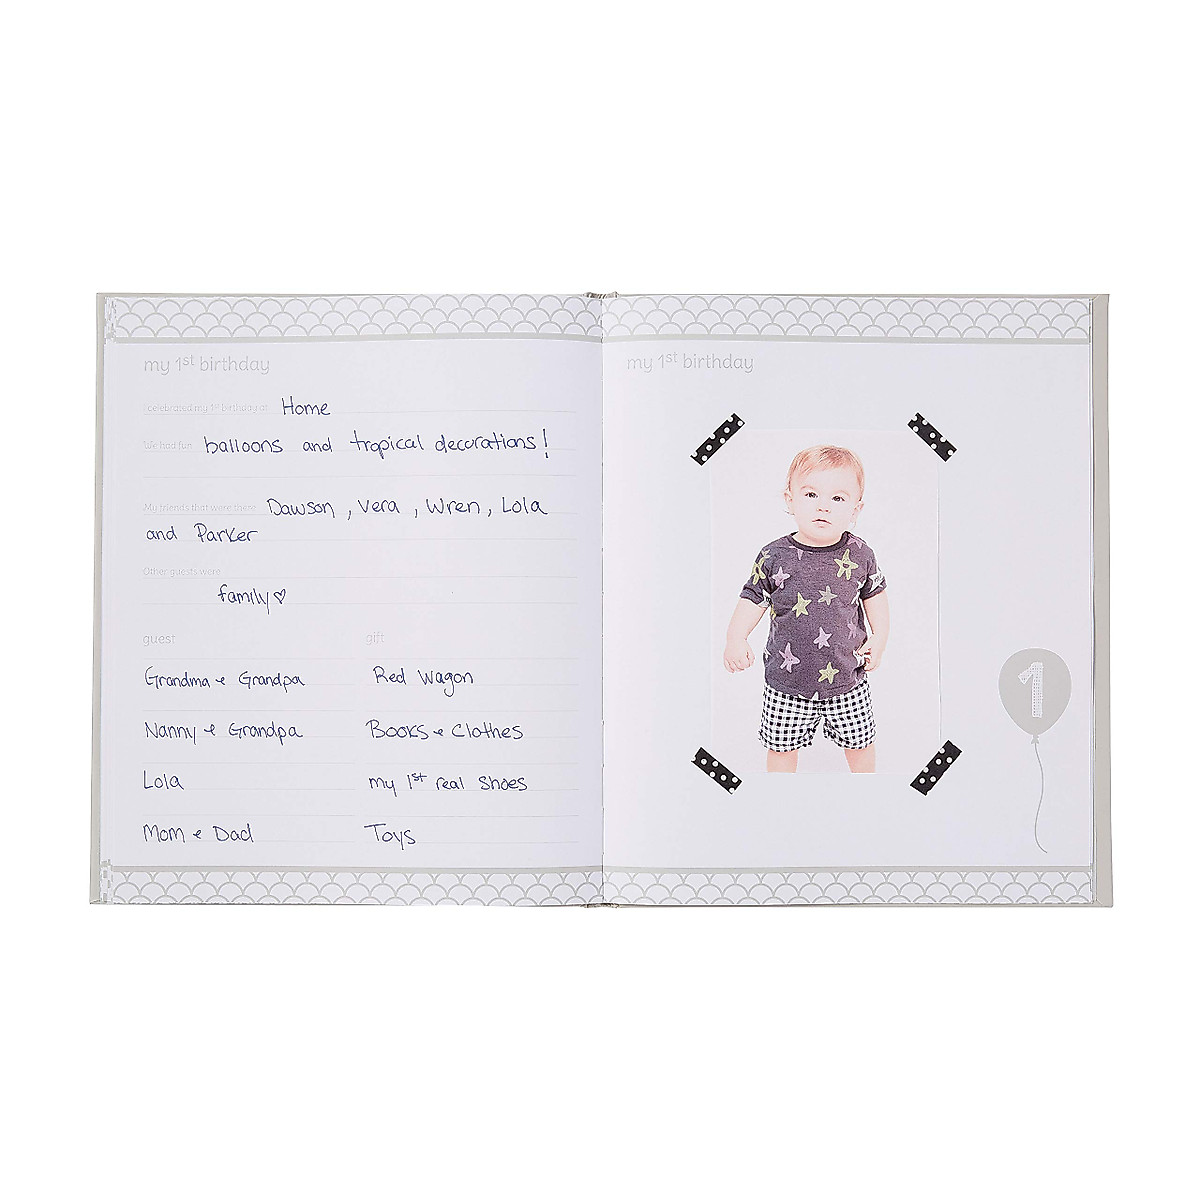 my 1st birthday
I celebrated my 1st birthday at Home
We had fun balloons and tropical decorations!
My friends that were there Dawson, Vera, Wren, Lola
and Parker
Other guests were
family♡
guest gift
Grandma + Grandpa Red Wagon
Nanny + Grandpa Books + Clothes
Lola my 1st real shoes
Mom + Dad Toys
my 1st birthday
1